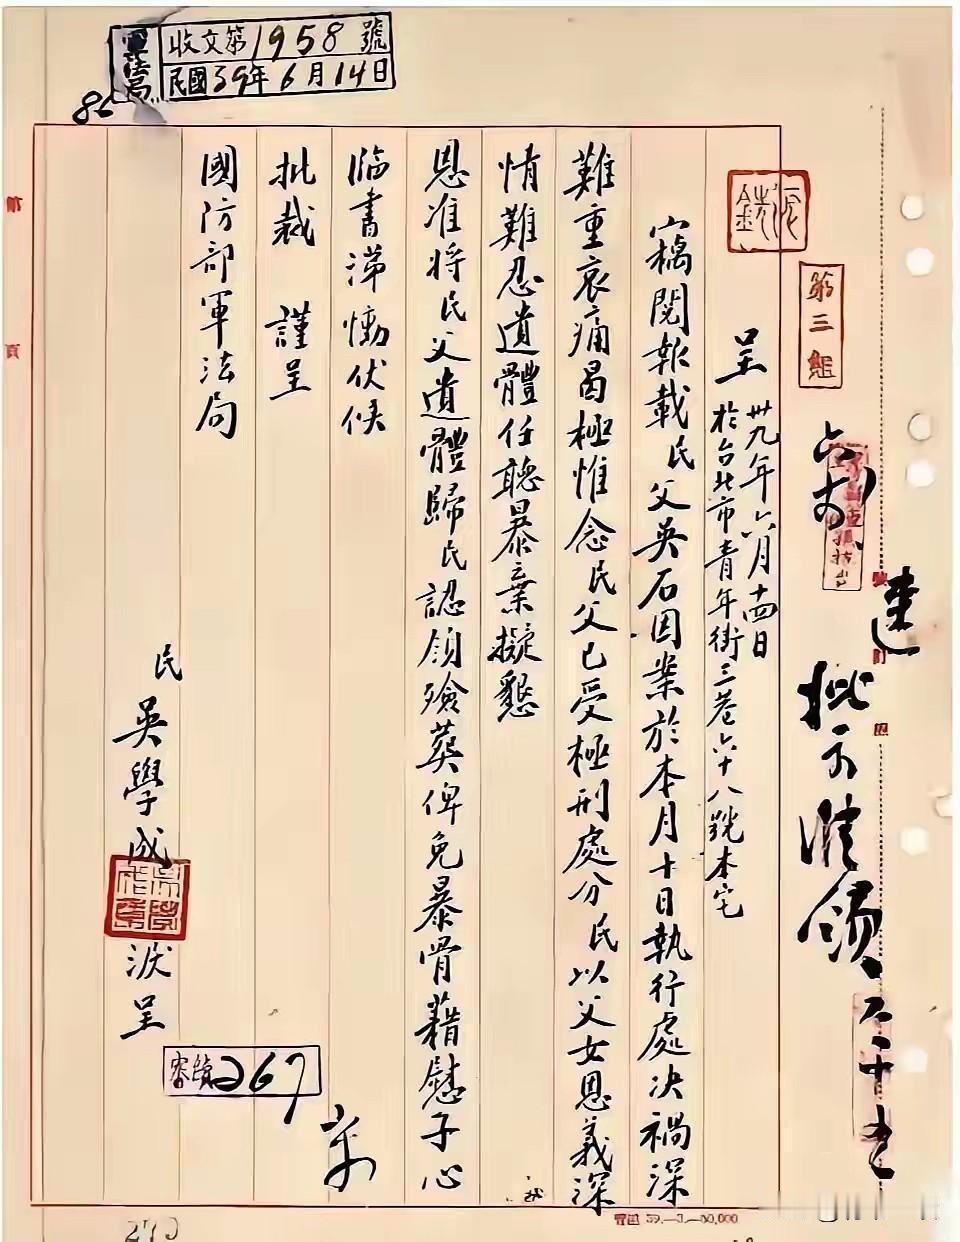 軍法局
收文第1958號
民國39年6月14日
第三組
速
批示准領
呈
卅九年六月十四日
於台北市青年街三巷六十八號本宅
竊閱報載民父吳石因案於本月十日執行處決禍深
難重哀痛曷極惟念民父已受極刑處分民以父女恩義深
情難忍遺體任聽暴棄擬懇
恩准將民父遺體歸民認領殮葬俾免暴骨藉慰子心
臨書涕慟伏候
批裁 謹呈
國防部軍法局
民
吳學成
淚呈
267
第
頁
39.—3.—50,000
270